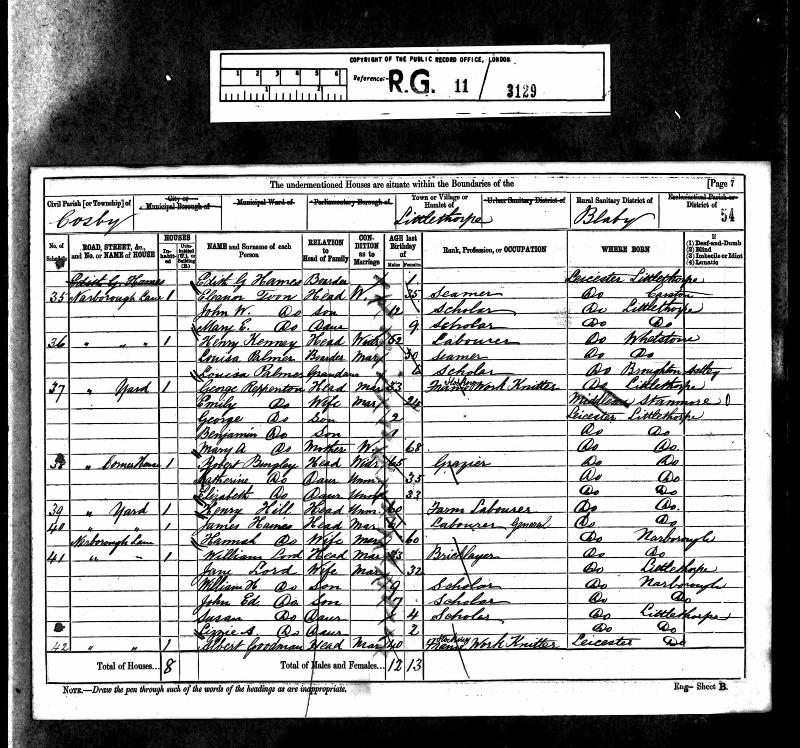 COPYRIGHT OF THE PUBLIC RECORD OFFICE, LONDON
1 2 3 4 5 6
Reference:- R.G. 11 / 3129
1 2
The undermentioned Houses are situate within the Boundaries of the [Page 7
Civil Parish [or Township] of City or Municipal Borough of Municipal Ward of Parliamentary Borough of Town or Village or Hamlet of Urban Sanitary District of Rural Sanitary District of Ecclesiastical Parish or District of
Cosby Littlethorpe Blaby 54
No. of Schedule ROAD, STREET, &c., and No. or NAME of HOUSE HOUSES Inhabited Uninhabited (U.), or Building (B.) NAME and Surname of each Person RELATION to Head of Family CONDITION as to Marriage AGE last Birthday of Males Females Rank, Profession, or OCCUPATION WHERE BORN If (1) Deaf-and-Dumb (2) Blind (3) Imbecile or Idiot (4) Lunatic
Edit G. Hames Edit G Hames Boarder 1 Leicester Littlethorpe
35 Narborough Lane 1 Eleanor Toon Head W. 35 Seamer Do
John W. Do Son 12 Scholar Do Littlethorpe
Mary E. Do Daur 9 Scholar Do Do
36 " " " 1 Henry Kenney Head Widr 52 Labourer Do Whetstone
Louisa Palmer Boarder Mar 30 Seamer Do Do
Louisa Palmer Grandaur 6 Scholar Do Broughton Astley
37 " Yard 1 George Reppenton Head Mar 33 Frame Work Knitter Do Littlethorpe
Emily Do Wife Mar 24 Middlesex Stanmore
George Do Son 2 Leicester Littlethorpe
Benjamin Do Son Do Do
Mary A Do Mother W 68 Do Do
38 " House 1 Robert Bingley Head Widr 65 Grazier Do Do
Katherine Do Daur Unm 35 Do Do
Elizabeth Do Daur 33 Do Do
39 " Yard 1 Henry Hill Head Unm 60 Farm Labourer Do Do
40 " " 1 James Haines Head Mar 61 Labourer General Do Do
Narborough Lane Hannah Do Wife Mar 60 Do Narborough
41 " 1 William Lord Head Mar 33 Bricklayer Do Do
Jany Lord Wife Mar 32 Do Littlethorpe
William H Do Son 9 Scholar Do Narborough
John Ed. Do Son 7 Scholar Do Do
Susan Do Daur 4 Scholar Do Littlethorpe
Lizzie A Do Daur 2 Do Do
42 " " 1 Albert Goodman Head Mar 40 Work Knitter Leicester Do
Total of Houses... 8 Total of Males and Females... 12 13
NOTE.—Draw the pen through such of the words of the headings as are inappropriate. Eng—Sheet B.